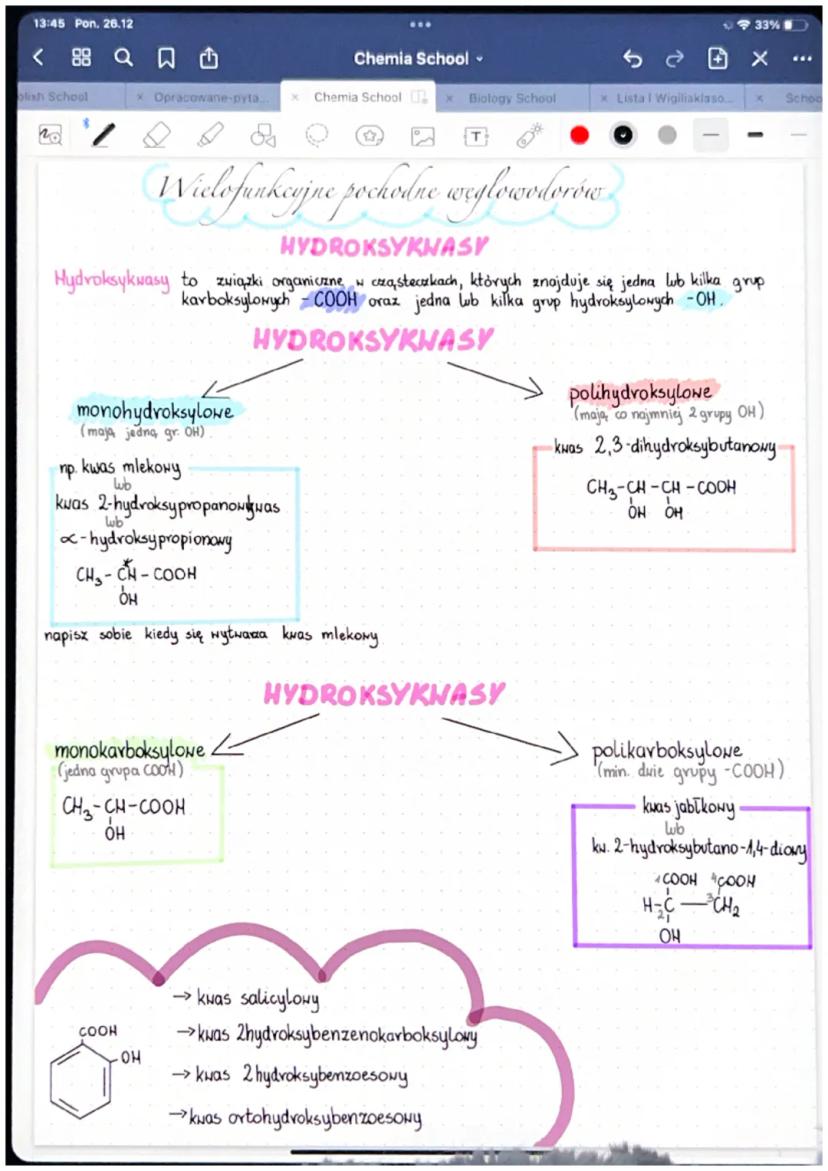 13:45 Pon. 26.12
33%
Chemia School
olish School
× Opracowane-pyta...
× Chemia School
× Biology School
× Lista I Wigiliaklaso...
× Schoo
T
Wielofunkcyjne pochodne węglowodorów
HYDROKSYKWASY
Hydroksykwasy to związki organiczne w cząsteczkach, których znajduje się jedna lub kilka grup
karboksylowych -COOH oraz jedna lub kilka grup hydroksylowych -OH.
HYDROKSYKWASY
monohydroksylowe
(mają jedną gr. OH)
np. kwas mlekowy
lub
kwas 2-hydroksypropanowy kwas
lub
∝-hydroksypropionowy
CH₃ - C*H - COOH
OH
napisz sobie kiedy się wytwarza kwas mlekowy
polihydroksylowe
(mają co najmniej 2 grupy OH)
kwas 2,3-dihydroksybutanowy
CH₃-CH-CH-COOH
OH OH
HYDROKSYKWASY
monokarboksylowe
(jedna grupa COOH)
CH₃-CH-COOH
OH
polikarboksylowe
(min. dwie grupy -COOH)
kwas jabłkowy
lub
kw. 2-hydroksybutano-1,4-diowy
¹COOH ⁴COOH
H-²C — ³CH₂
OH
COOH
OH
→ kwas salicylowy
→ kwas 2hydroksybenzenokarboksylowy
→ kwas 2hydroksybenzoesowy
→ kwas ortohydroksybenzoesowy